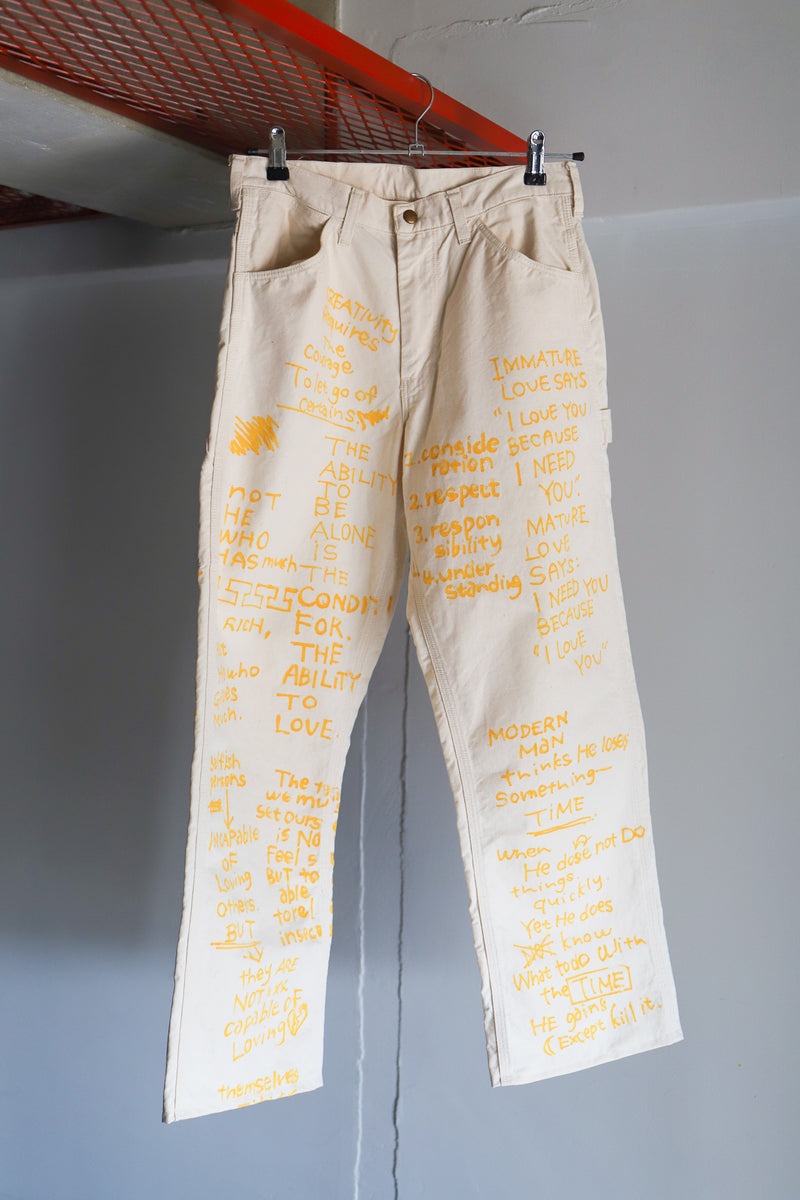 CREATIVITY
Requires
The
Courage
To let go of
certains
THE
ABILITY
TO
BE
ALONE
iS
THE
CONDITI
FOR.
THE
ABILITY
TO
LOVE.
NOT
HE
WHO
HAS much
RICH,
who
Gives
Much.
selfish
persons
INCAPABLE
OF
Loving
Others.
BUT
they ARE
NOT
capable OF
Loving
themselves
The
we mu
set ours
is NO
Feel s
BUT to
able
insecu
1. conside
ration
2. respect
3. respon
sibility
4. under
standing
IMMATURE
LOVE SAYS
"I LOVE YOU
BECAUSE
I NEED
YOU."
MATURE
LOVE
SAYS:
I NEED YOU
BECAUSE
"I LOVE
YOU"
MODERN
MAN
thinks He loses
Something—
TiME
when
He dose not DO
things.
quickly.
Yet He does
know
What todO With
the TIME
HE gains
(Except kill it.